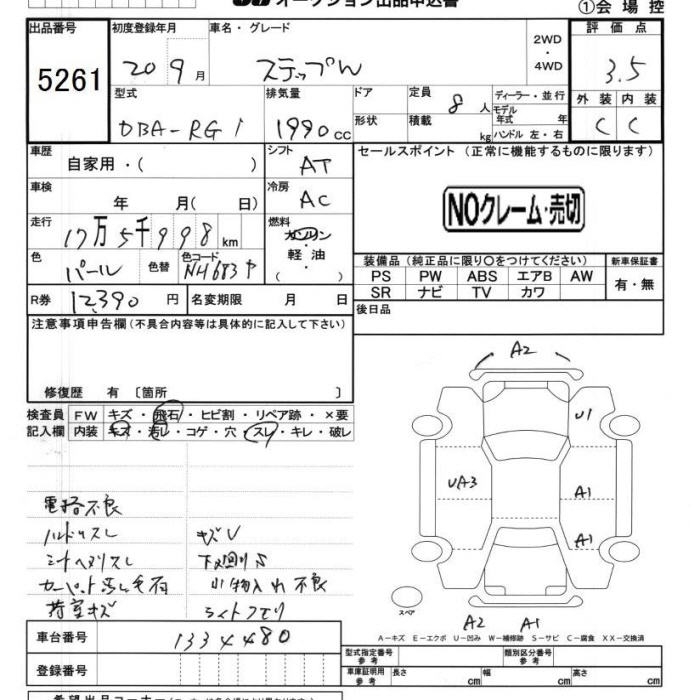 オークション出品申込書
①会場控
出品番号 初度登録年月 車名・グレード 2WD・4WD 評価点
5261 20 9月 ステップW 3.5
型式 排気量 ドア 定員 8人 ディーラー・並行 外装 内装
DBA-RG1 1990cc 形状 積載 kg モデル年式 年 ハンドル 左・右 C C
車歴 自家用・( ) シフト AT セールスポイント (正常に機能するものに限ります)
車検 年 月( 日) 冷房 AC
NOクレーム・売切
走行 17万5千998km 燃料 ガソリン・軽油・( )
色 パール 色替 色コード NH683P
装備品 (純正品に限り○をつけてください) 新車保証書
PS PW ABS エアB AW 有・無
SR ナビ TV カワ
R券 12,390円 名変期限 月 日 後日品
注意事項申告欄(不具合内容等は具体的に記入して下さい)
修復歴 有 〔箇所 〕
検査員 FW キズ・飛石・ヒビ割・リペア跡・×要
記入欄 内装 キズ・汚レ・コゲ・穴・スレ・キレ・破レ
電格不良
ハンドルスレ キズU
シートヘタリスレ 下廻りS
カーペット汚レ 小物入れ不良
荷室キズ ライトクモリ
A2
U1
UA3 A1
A1
スペア
A2 A1
A-キズ E-エクボ U-凹み W-補修跡 S-サビ C-腐食 XX-交換済
車台番号 1334480
登録番号
型式指定番号 参考 類別区分番号 参考
車庫証明用 参考 長さ cm 幅 cm 高さ cm